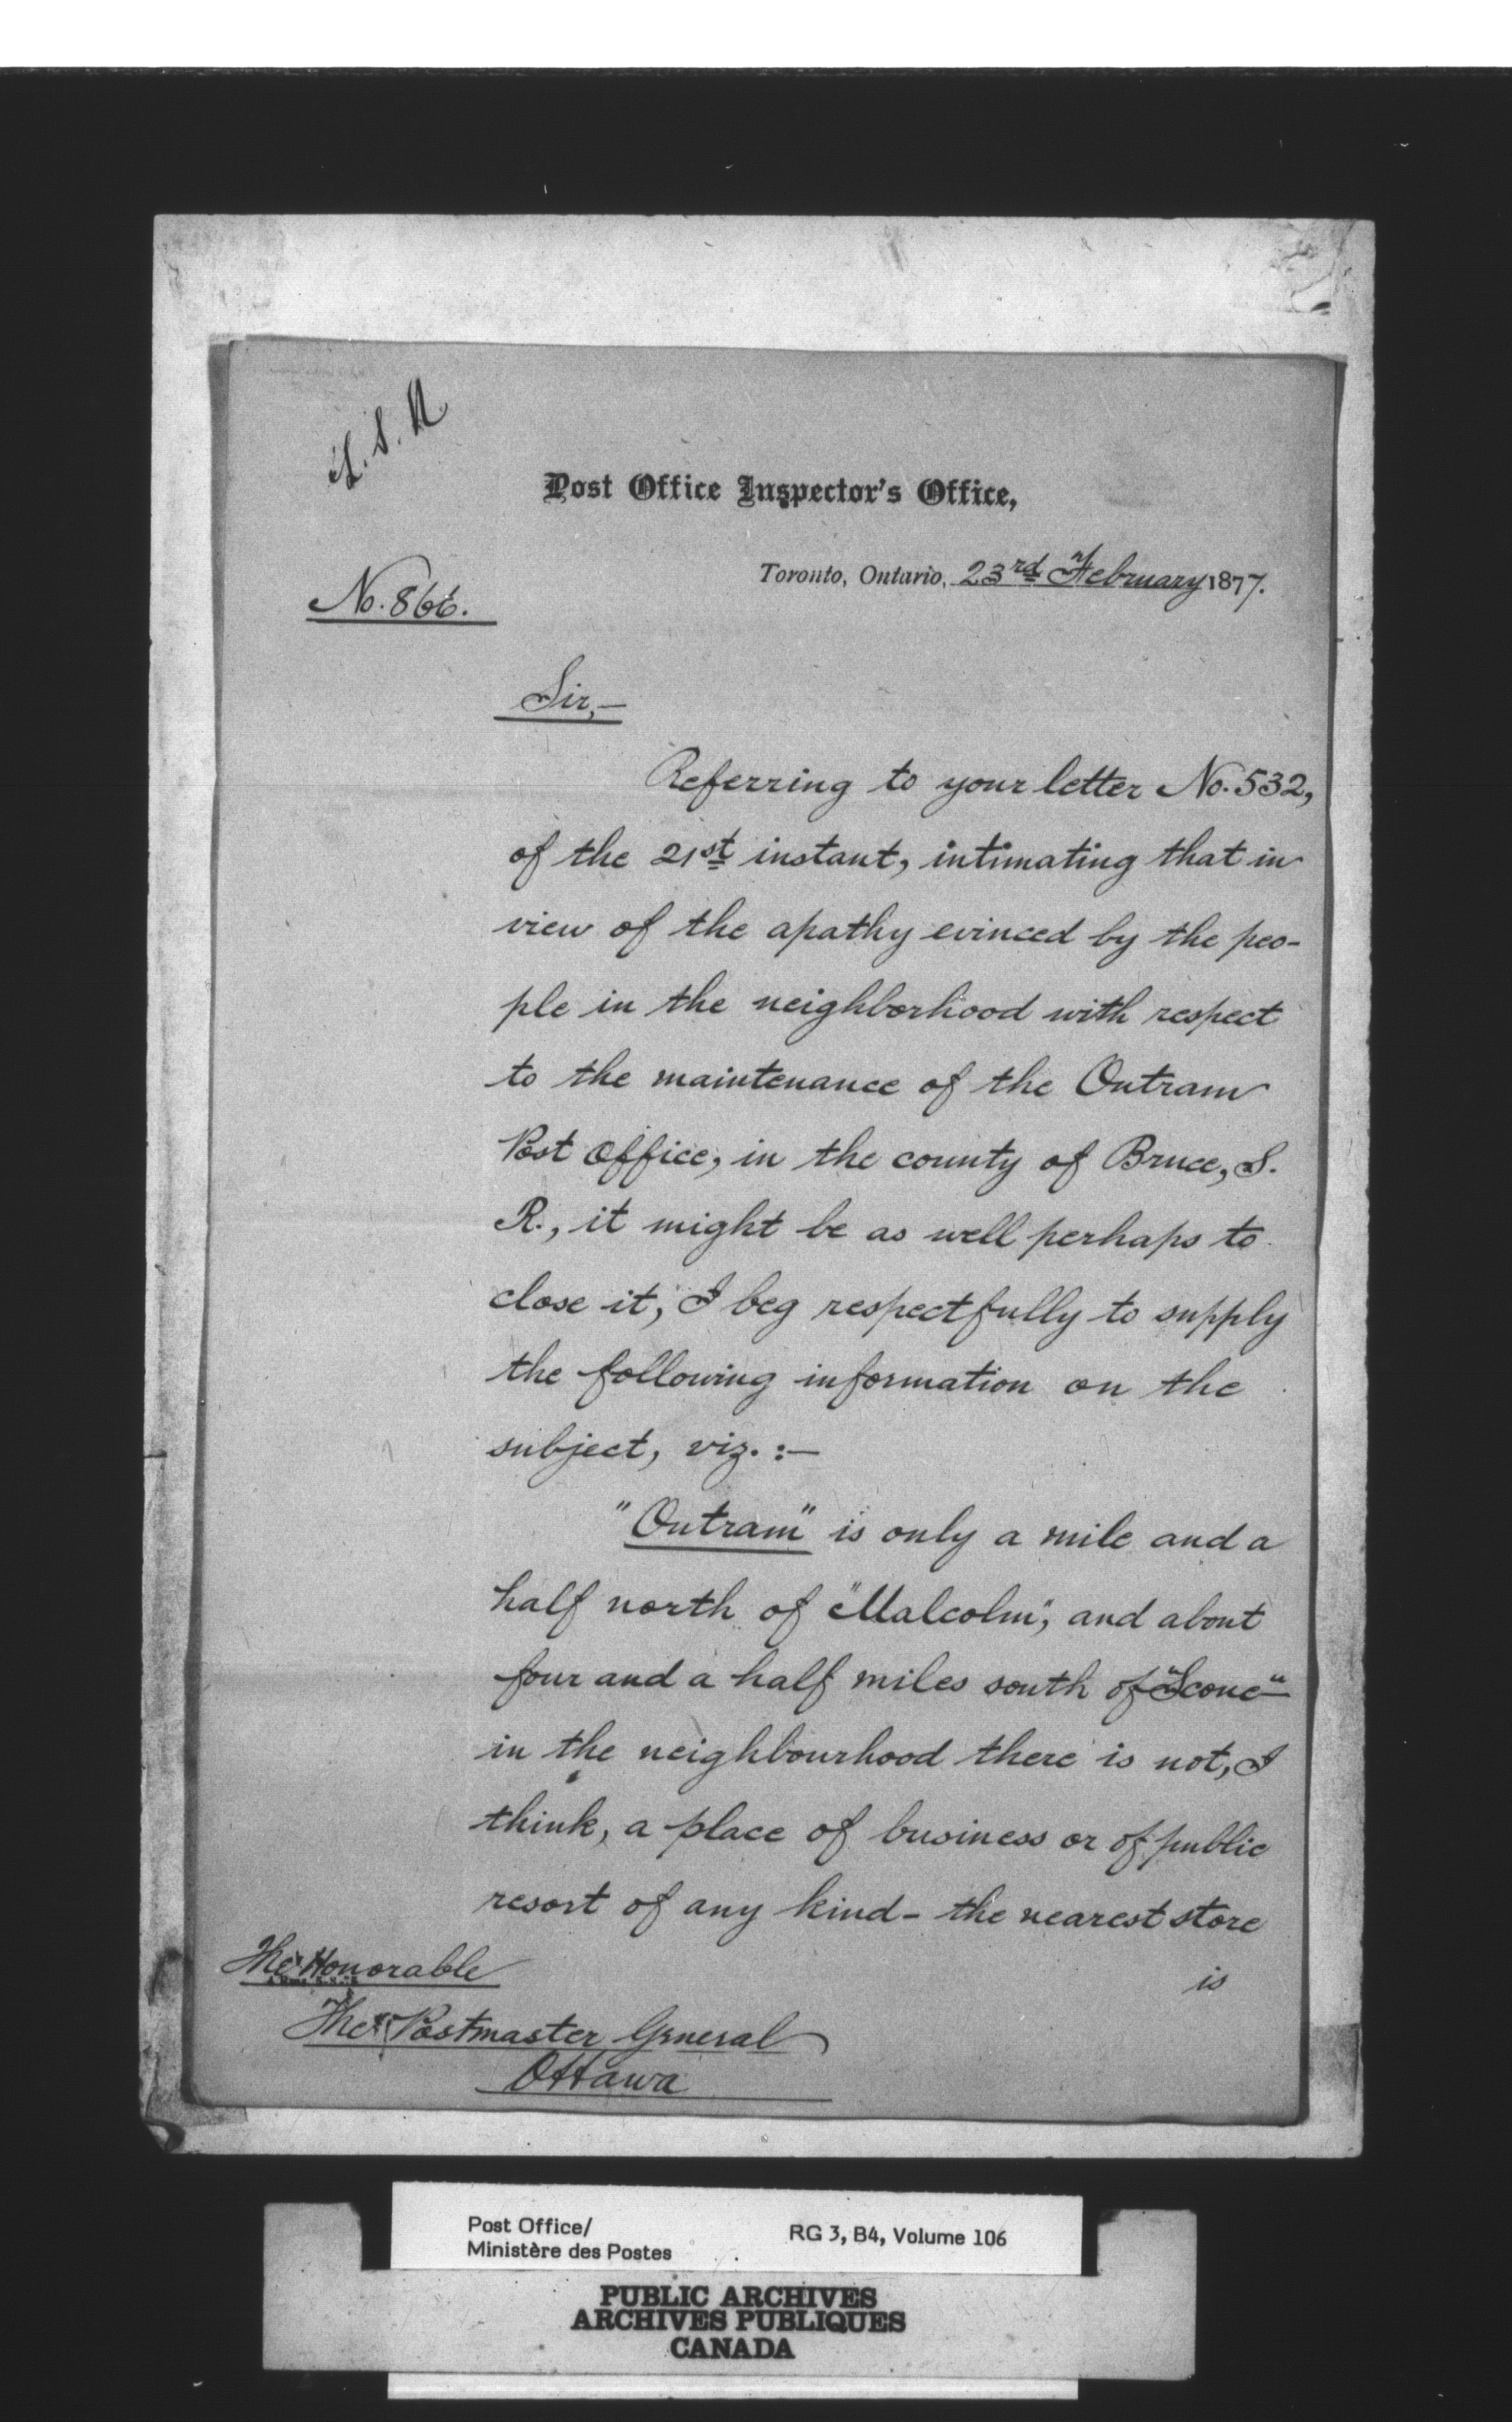 Post Office Inspector's Office,
Toronto, Ontario, 23rd February 1877.
No. 866.
Sir,—
Referring to your letter No. 532,
of the 21st instant, intimating that in
view of the apathy evinced by the peo-
ple in the neighborhood with respect
to the maintenance of the Outram
Post Office, in the county of Bruce, S.
R., it might be as well perhaps to
close it, I beg respectfully to supply
the following information on the
subject, viz. :—
"Outram" is only a mile and a
half north of "Malcolm", and about
four and a half miles south of "Scone"—
in the neighbourhood there is not, I
think, a place of business or of public
resort of any kind - the nearest store
is
The Honorable
The Postmaster General
Ottawa
Post Office/
Ministère des Postes
RG 3, B4, Volume 106
PUBLIC ARCHIVES
ARCHIVES PUBLIQUES
CANADA